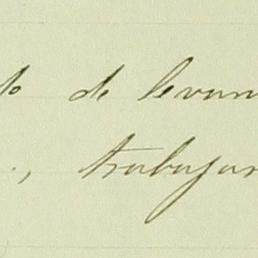 de levan
trabajar